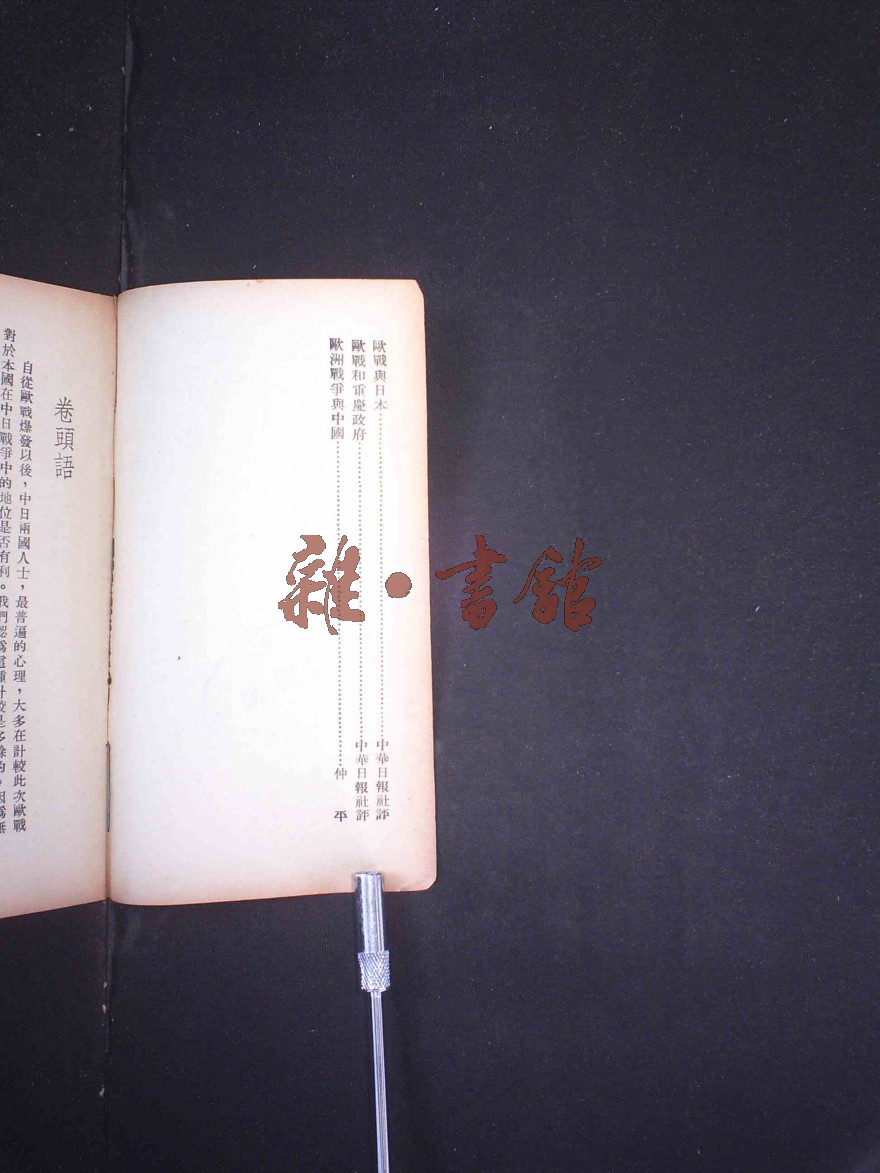 歐戰與日本……………………中華日報社評
歐戰和重慶政府……………………中華日報社評
歐洲戰爭與中國……………………仲 平
卷頭語
自從歐戰爆發以後，中日兩國人士，最普遍的心理，大多在計較此次歐戰
對於本國在中日戰爭中的地位是否有利。我們認爲這種計較是多餘的。因爲無
雜·書館